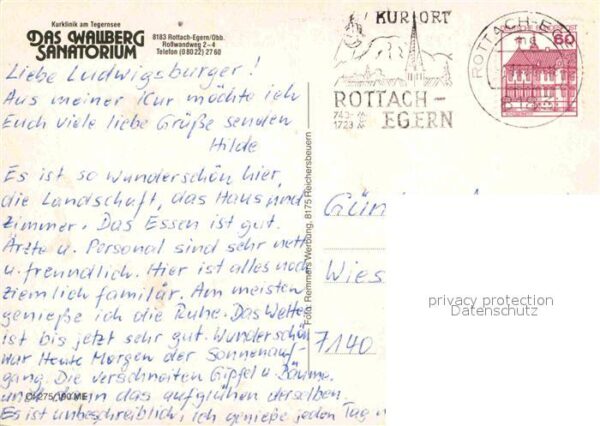 Kurklinik am Tegernsee
DAS WALLBERG
SANATORIUM
8183 Rottach-Egern/Obb.
Roßwandweg 2-4
Telefon (0 80 22) 27 60
KURORT
ROTTACH-
EGERN
740-
1723
ROTTACH-E
60
Liebe Ludwigsburger!
Aus meiner Kur möchte ich
Euch viele liebe Grüße senden
Hilde
Es ist so wunderschön hier,
die Landschaft, das Haus und
Zimmer. Das Essen ist gut.
Ärzte u. Personal sind sehr nett
u. freundlich. Hier ist alles noch
ziemlich familiär. Am meisten
genieße ich die Ruhe. Das Wetter
ist bis jetzt sehr gut. Wunderschön
war heute Morgen der Sonnenauf-
gang. Die verschneiten Gipfel u. Bäume
und dann das aufglühen derselben.
Es ist unbeschreiblich, ich genieße jeden Tag
Foto: Remmers Werbung, 8175 Reichersbeuern
Gün
Wies
7140
privacy protection
Datenschutz